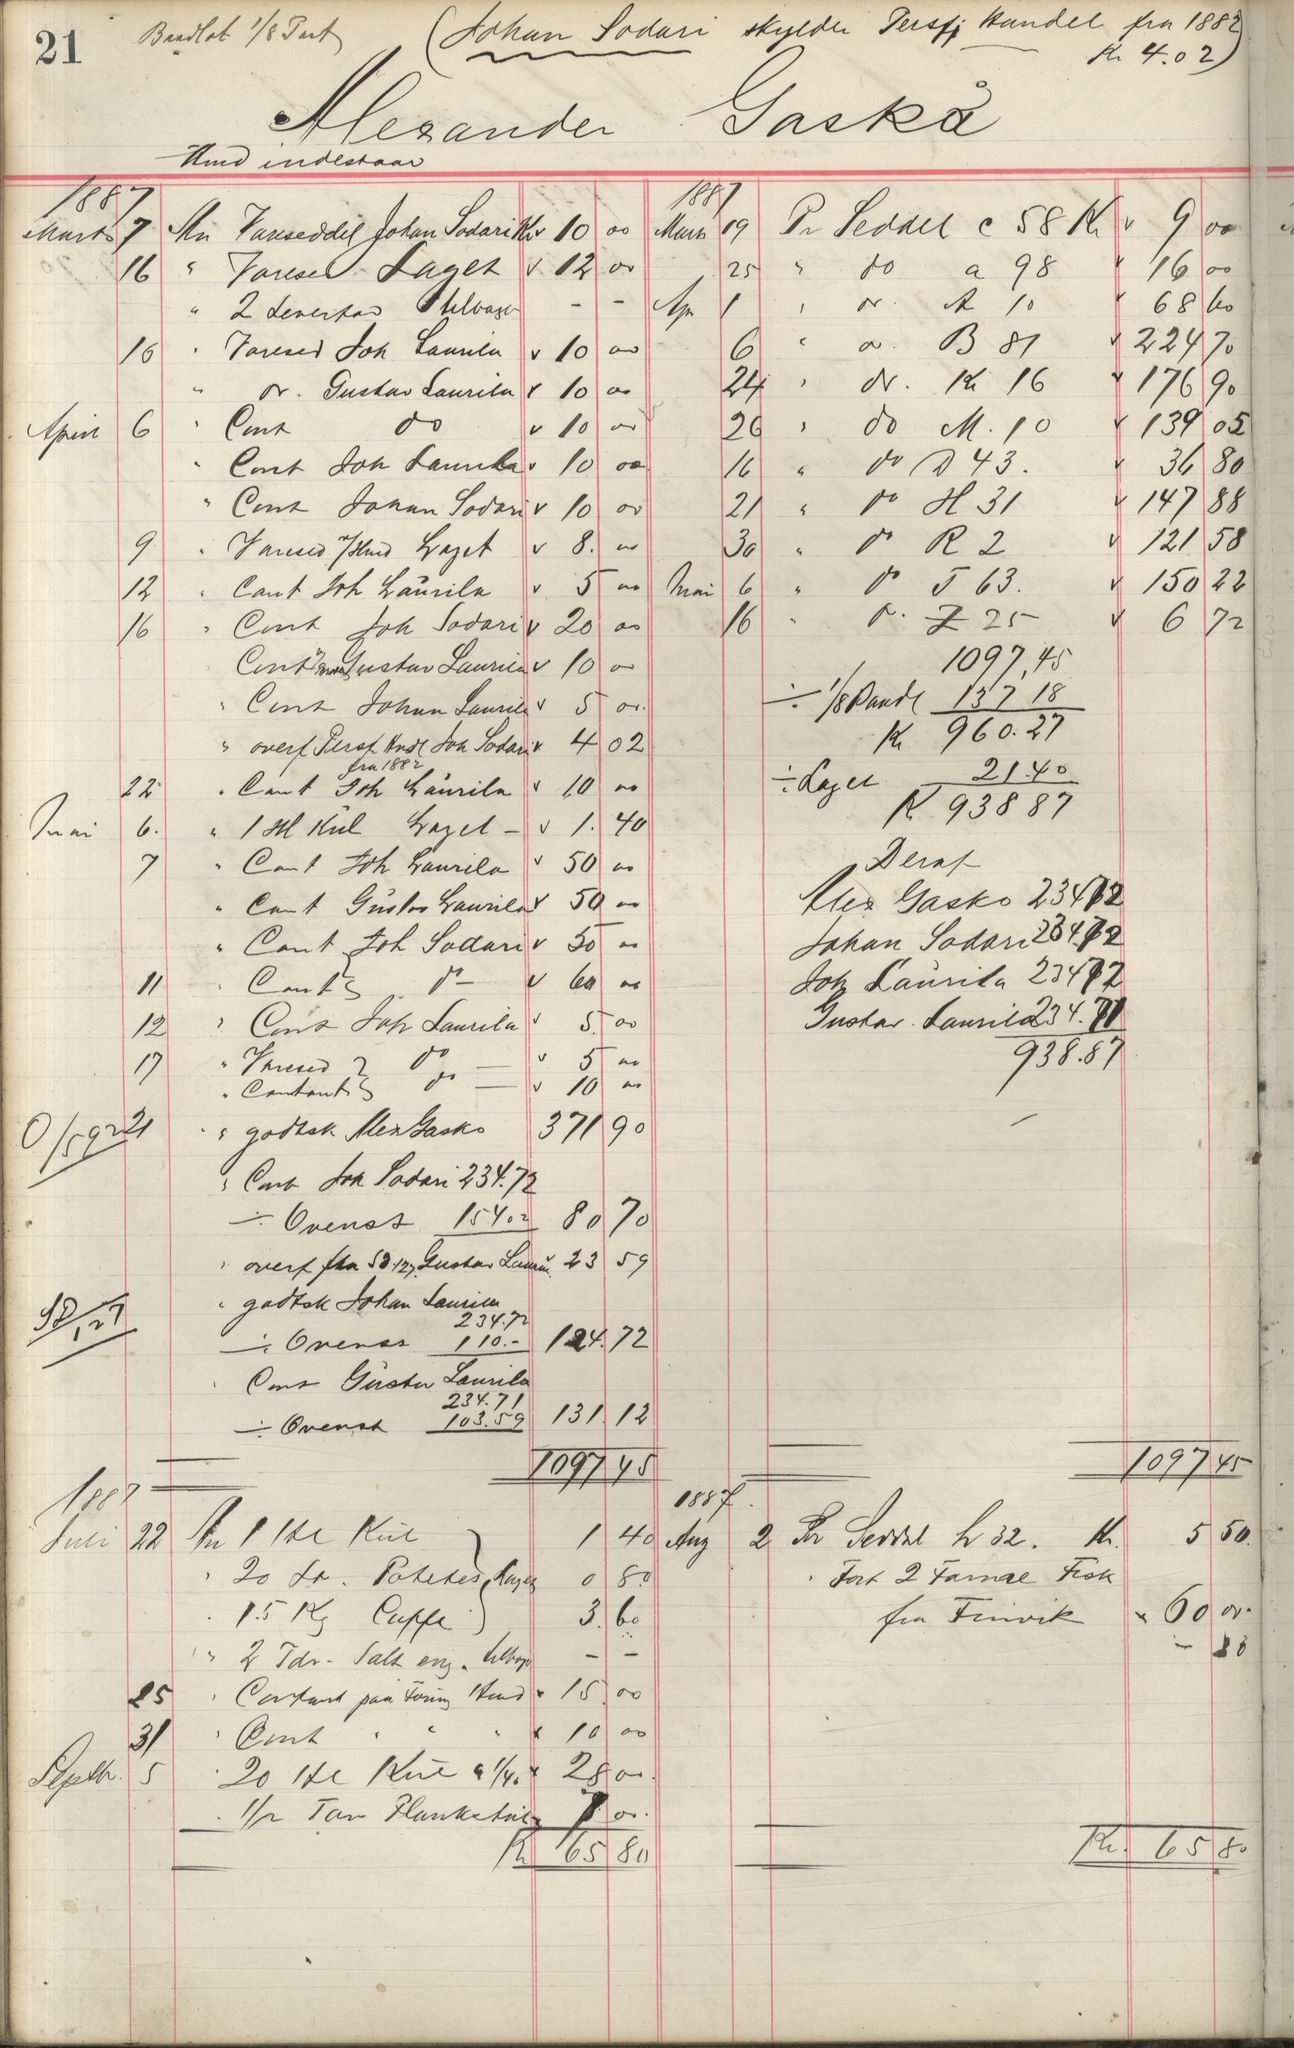 21
Baadlot 1/8 Part
(Johan Sodari skylder Persfj Handel fra 1882
Kr 4.02)
Alexander Gaskå
Hmd indestaar
1887
Marts 7 An Vareseddel Johan Sodari Kr 10 00
16 " Varesed Laget 12 00
" 2 tilbage - -
16 " Varesed Joh Laurila 10 00
" do. Gustav Laurila 10 00
April 6 " Cont do 10 00
" Cont Joh Laurila 10 00
" Cont Johan Sodari 10 00
9 " Varesed Hmd Laget 8. 00
12 " Cont Joh Laurila 5 00
16 " Cont Joh Sodari 20 00
Cont Gustav Laurila 10 00
" Cont Johan Laurila 5 00
" overf Persf Hndl Joh Sodari 4 02
fra 1882
22 " Cant Joh Laurila 10 00
Mai 6. " 1 Hl Kul Laget - 1. 40
7 " Cant Joh Laurila 50 00
" Cant Gustav Laurila 50 00
" Cant Joh Sodari 50 00
11 " Cant do - 60 00
12 " Cont Joh Laurila 5. 00
17 " Varesed do - 5 00
" Contant do - 10 00
21 " godtsk Alex Gasko 371 90
" Cont Joh Sodari 234.72
÷ Ovenst 154.02 80 70
" overf fra SD 127. Gustav Lauri. 23 59
SD/127
" godtsk Johan Laurila
234.72
÷ Ovenst 110.- 124.72
" Cont Gustav Laurila
234.71
÷ Ovenst 103.59 131.12
1097 45
1887
Marts 19 Pr Seddel c 58 Kr 9 00
25 " do a 98 16 00
Apr 1 " do. A 10 68 60
6 " do. B 81 224 70
24 " do. K 16 176 90
26 " do M. 10 139 05
16 " do D 43. 36 80
21 " do H 31 147 88
30 " do R 2 121 58
Mai 6 " do T 63. 150 22
16 " do. Z 25 6 72
1097,45
÷ 1/8 Baadl 137 18
Kr 960.27
÷ Laget 21.40
K 938 87
Deraf
Alex Gasko 234 72
Johan Sodari 234.72
Joh Laurila 234 72
Gustav Laurila 234.71
938.87
1097 45
1887
Juli 22 An 1 Hl Kul 1 40
" 20 Poteter Laget 0 80
" 1.5 Kg Caffe 3. 60
" 2 Tdr. Salt eng. tilbage - -
25 " Contant paa Føring Hmd 15 00
31 " Cont " " " 10 00
Septbr. 5 " 20 Hl Kul a 1/40 28 00
" 1/2 Tav 7 00
Kr 65 80
1887.
Aug 2 Pr Seddel L 32. Kr. 5 50.
" Fort 2 Farnæ Fisk
fra Finvik 60 00.
- 30
Kr. 65 80